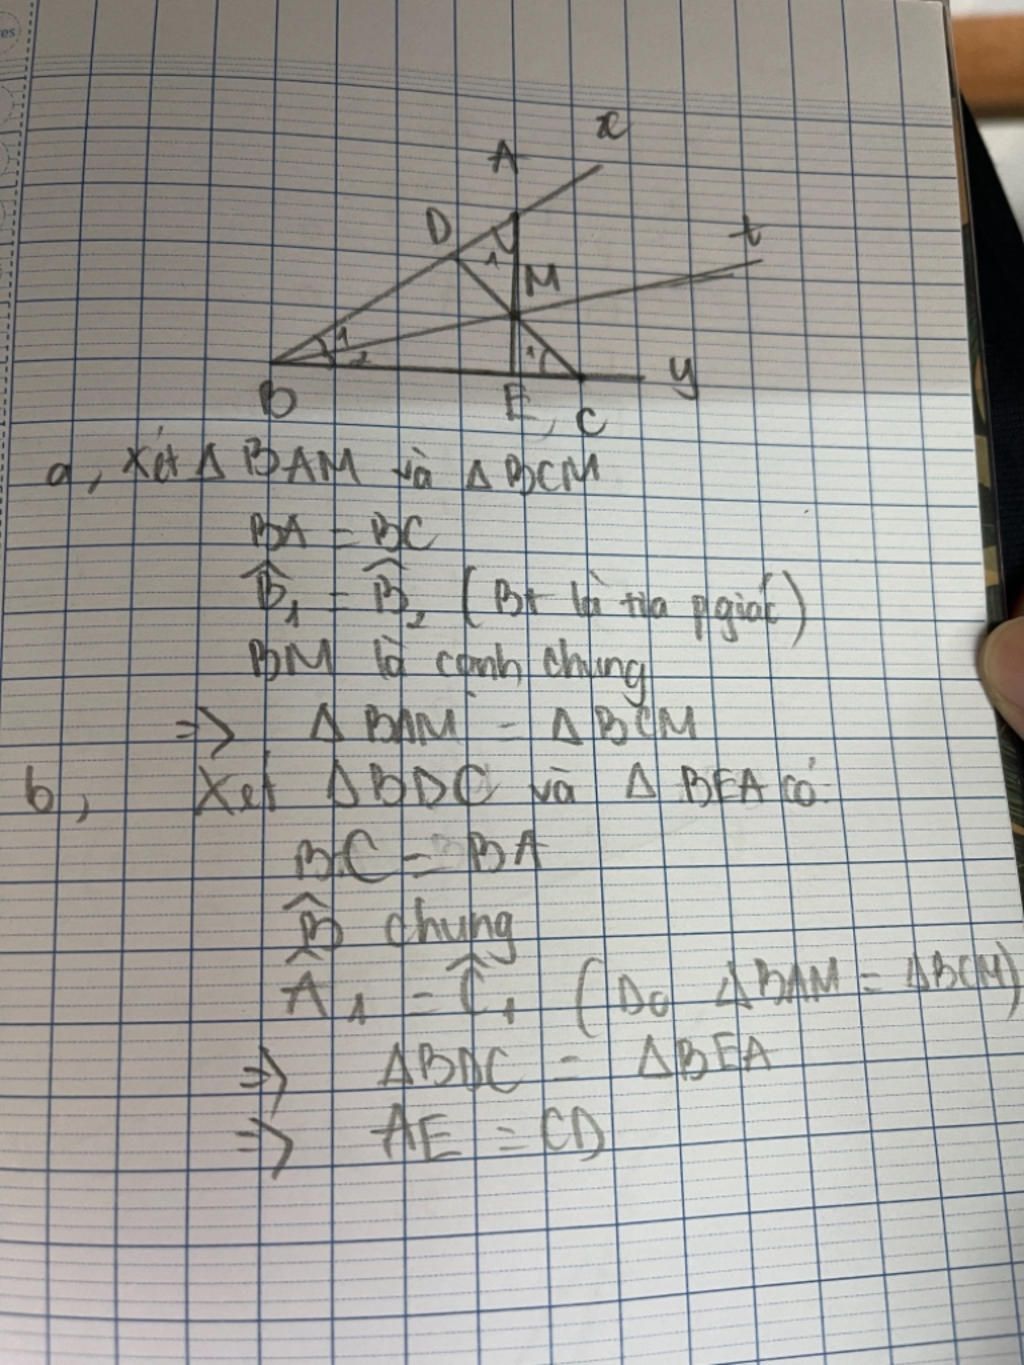 es
x
A
D
t
1
M
1
2
1
y
B
E
C
a, Xét Δ BAM và Δ BCM
BA = BC
B̂₁ = B̂₂ (Bt là tia pgiác)
BM là cạnh chung
=> Δ BAM = Δ BCM
b, Xét ΔBDC và Δ BEA có:
BC = BA
B̂ chung
Â₁ = Ĉ₁ (Do ΔBAM = ΔBCM)
=> ΔBDC = ΔBEA
=> AE = CD